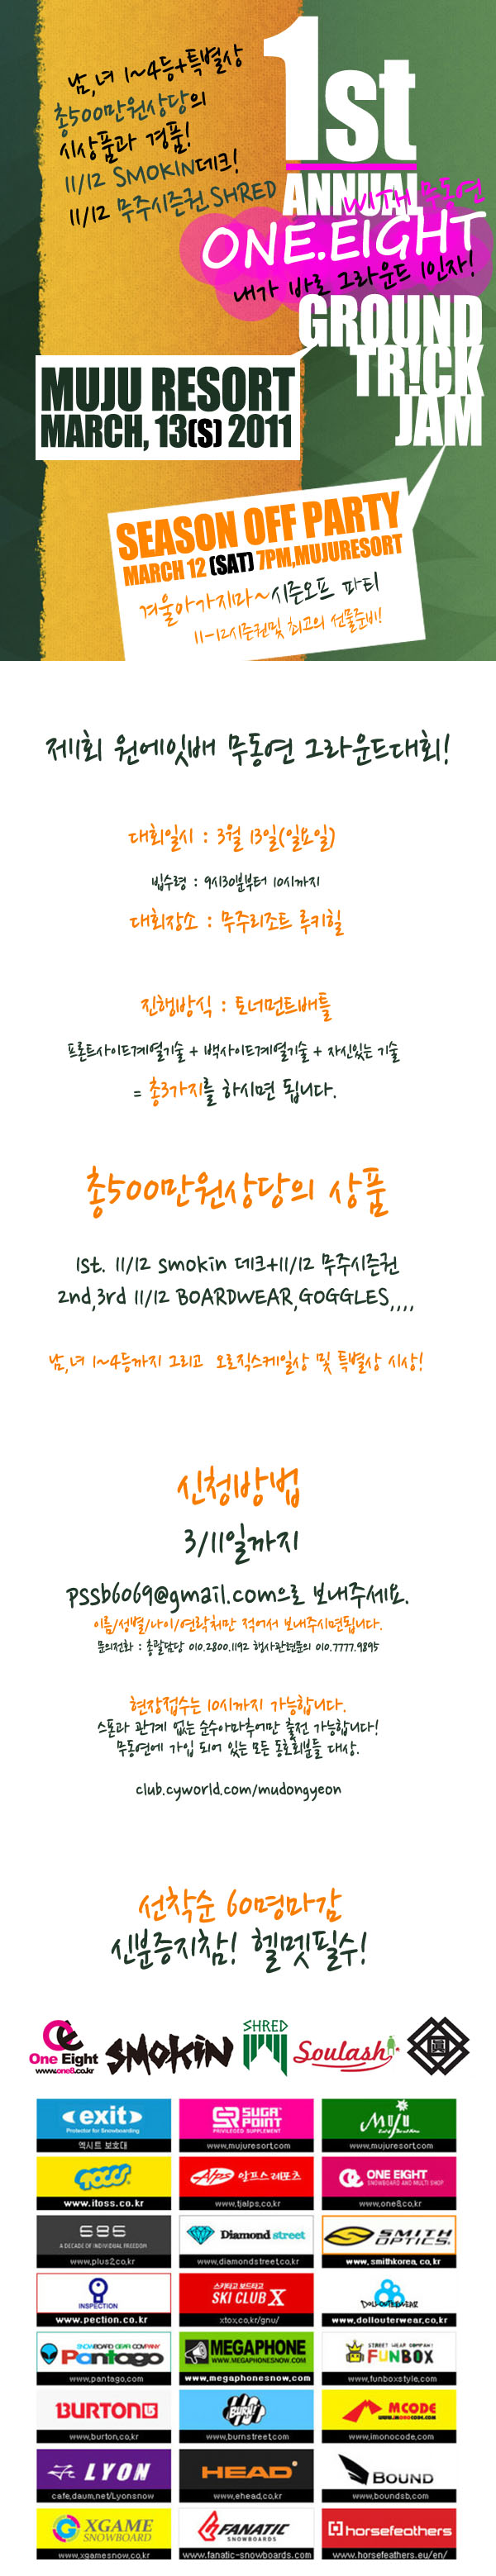 남,녀 1~4등+특별상
총500만원상당의
시상품과 경품!
11/12 SMOKIN데크!
11/12 무주시즌권.SHRED
1st
ANNUAL
WITH 무동연
ONE.EIGHT
내가 바로 그라운드 1인자!
GROUND
TR!CK
JAM
MUJU RESORT
MARCH, 13(S) 2011
SEASON OFF PARTY
MARCH 12 (SAT) 7PM,MUJURESORT
겨울아가지마~시즌오프 파티
11-12시즌권및 최고의 선물준비!
제1회 원에잇배 무동연 그라운드대회!
대회일시 : 3월 13일(일요일)
빕수령 : 9시30분부터 10시까지
대회장소 : 무주리조트 루키힐
진행방식 : 토너먼트배틀
프론트사이드계열기술 + 백사이드계열기술 + 자신있는 기술
= 총3가지를 하시면 됩니다.
총500만원상당의 상품
1st. 11/12 smokin 데크+11/12 무주시즌권
2nd,3rd 11/12 BOARDWEAR,GOGGLES,,,,
남,녀 1~4등까지 그리고 오로직스케일상 및 특별상 시상!
신청방법
3/11일까지
pssb6069@gmail.com으로 보내주세요.
이름/성별/나이/연락처만 적어서 보내주시면됩니다.
문의전화 : 총괄담당 010.2800.1192 행사관련문의 010.7777.9895
현장접수는 10시까지 가능합니다.
스폰과 관계 없는 순수아마추어만 출전 가능합니다!
무동연에 가입 되어 있는 모든 동호회분들 대상.
club.cyworld.com/mudongyeon
선착순 60명마감
신분증지참! 헬멧필수!
One Eight
www.one8.co.kr
SMOKIN
SHRED
Soulash
exit
Protector for Snowboarding
엑시트 보호대
SUGA POINT
PRIVILEGED SUPPLEMENT
www.mujuresort.com
MUJU
www.mujuresort.com
www.itoss.co.kr
Alps 알프스레포츠
www.tjalps.co.kr
ONE EIGHT
SNOWBOARD AND MULTI SHOP
www.one8.co.kr
686
A DECADE OF INDIVIDUAL FREEDOM
www.plus2.co.kr
Diamond street
www.diamondstreet.co.kr
SMITH OPTICS
www.smithkorea.co.kr
INSPECTION
www.pection.co.kr
스키타고 보드타고
SKI CLUB X
xtox.co.kr/gnu/
DOLLOUTERWEAR
www.dollouterwear.co.kr
SNOWBOARD GEAR COMPANY
Pantago
www.pantago.com
MEGAPHONE
WWW.MEGAPHONESNOW.COM
www.megaphonesnow.com
STREET WEAR COMPANY
FUNBOX
www.funboxstyle.com
BURTON
www.burton.co.kr
BURN!
www.burnstreet.com
MCODE
www.imonocode.com
LYON
cafe.daum.net/Lyonsnow
HEAD
www.ehead.co.kr
BOUND
www.boundsb.com
XGAME
SNOWBOARD
www.xgamesnow.co.kr
FANATIC
SNOWBOARDS
www.fanatic-snowboards.com
horsefeathers
www.horsefeathers.eu/en/